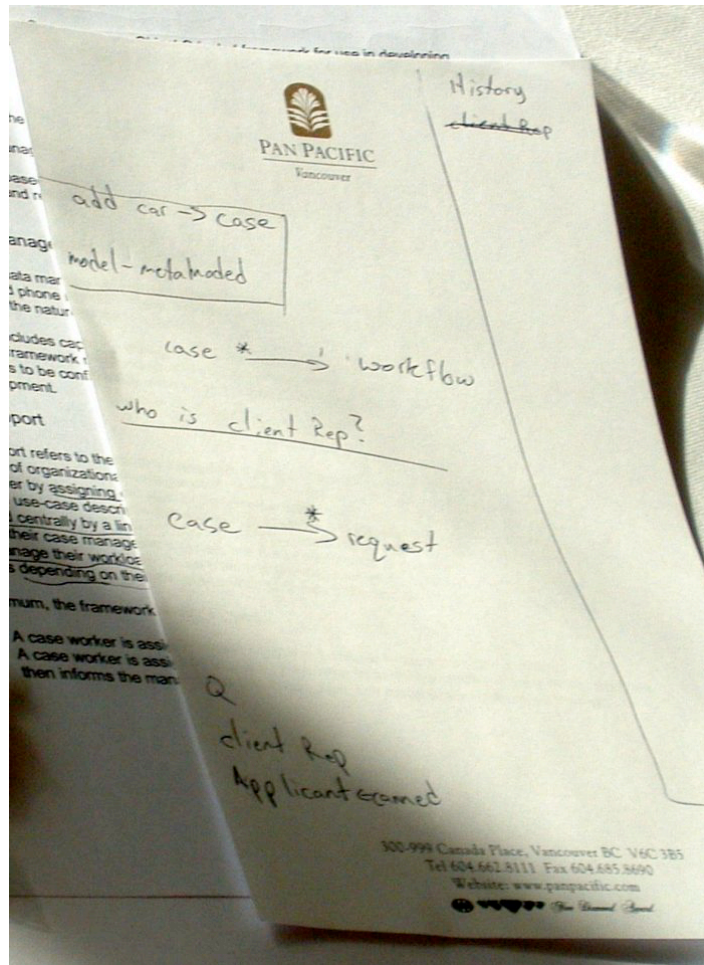 Object Oriented framework for use in developing
PAN PACIFIC
Vancouver
History
client Rep
add car → case
model - metamoded
case * → 1 workflow
who is client Rep?
case → * request
Q
client Rep
Applicant
300-999 Canada Place, Vancouver BC V6C 3B5
Tel 604.662.8111 Fax 604.685.8690
Website: www.panpacific.com
he
anag
ata mar
phone
the natur
cludes cap
ramework
s to be conf
pment.
port
ort refers to the
of organizationa
er by assigning
use-case descri
centrally by a lin
their case manage
nage their workloa
s depending on thei
mum, the framework
A case worker is assi
A case worker is assi
then informs the man